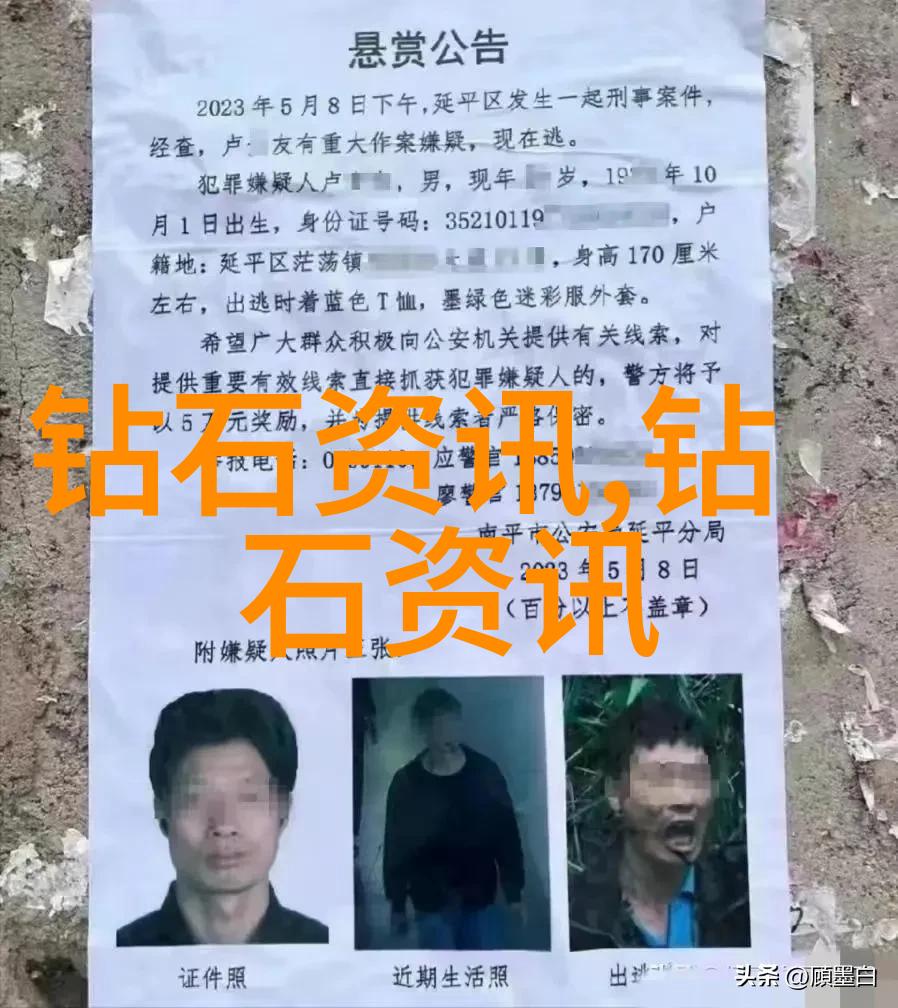 悬赏公告
2023年5月8日下午，延平区发生一起刑事案件，
经查，卢 友有重大作案嫌疑，现在逃。
犯罪嫌疑人卢 ，男，现年 岁，19 年10
月1日出生，身份证号码：35210119 ，户
籍地：延平区茫荡镇 ，身高170厘米
左右，出逃时着蓝色T恤，墨绿色迷彩服外套。
希望广大群众积极向公安机关提供有关线索，对
提供重要有效线索直接抓获犯罪嫌疑人的，警方将予
以5万元奖励，并 提供线索者严格保密。
钻石资讯,钻
石资讯
报电话：0 应警官
廖警官
南平市公安 延平分局
2023年5月8日
（百份以上不盖章）
附嫌疑人照片三张
证件照
近期生活照
出逃
头条 @顾墨白